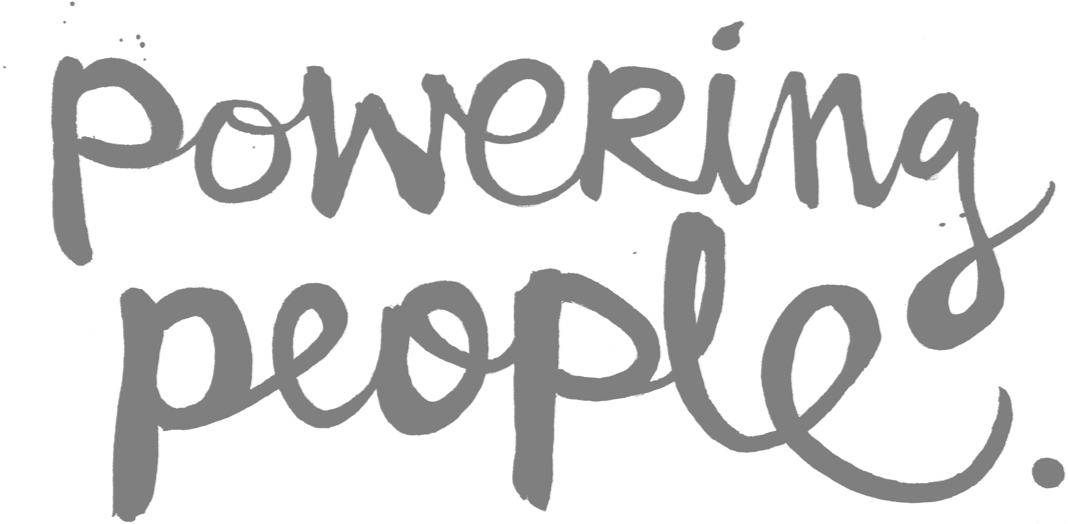 powering
people.